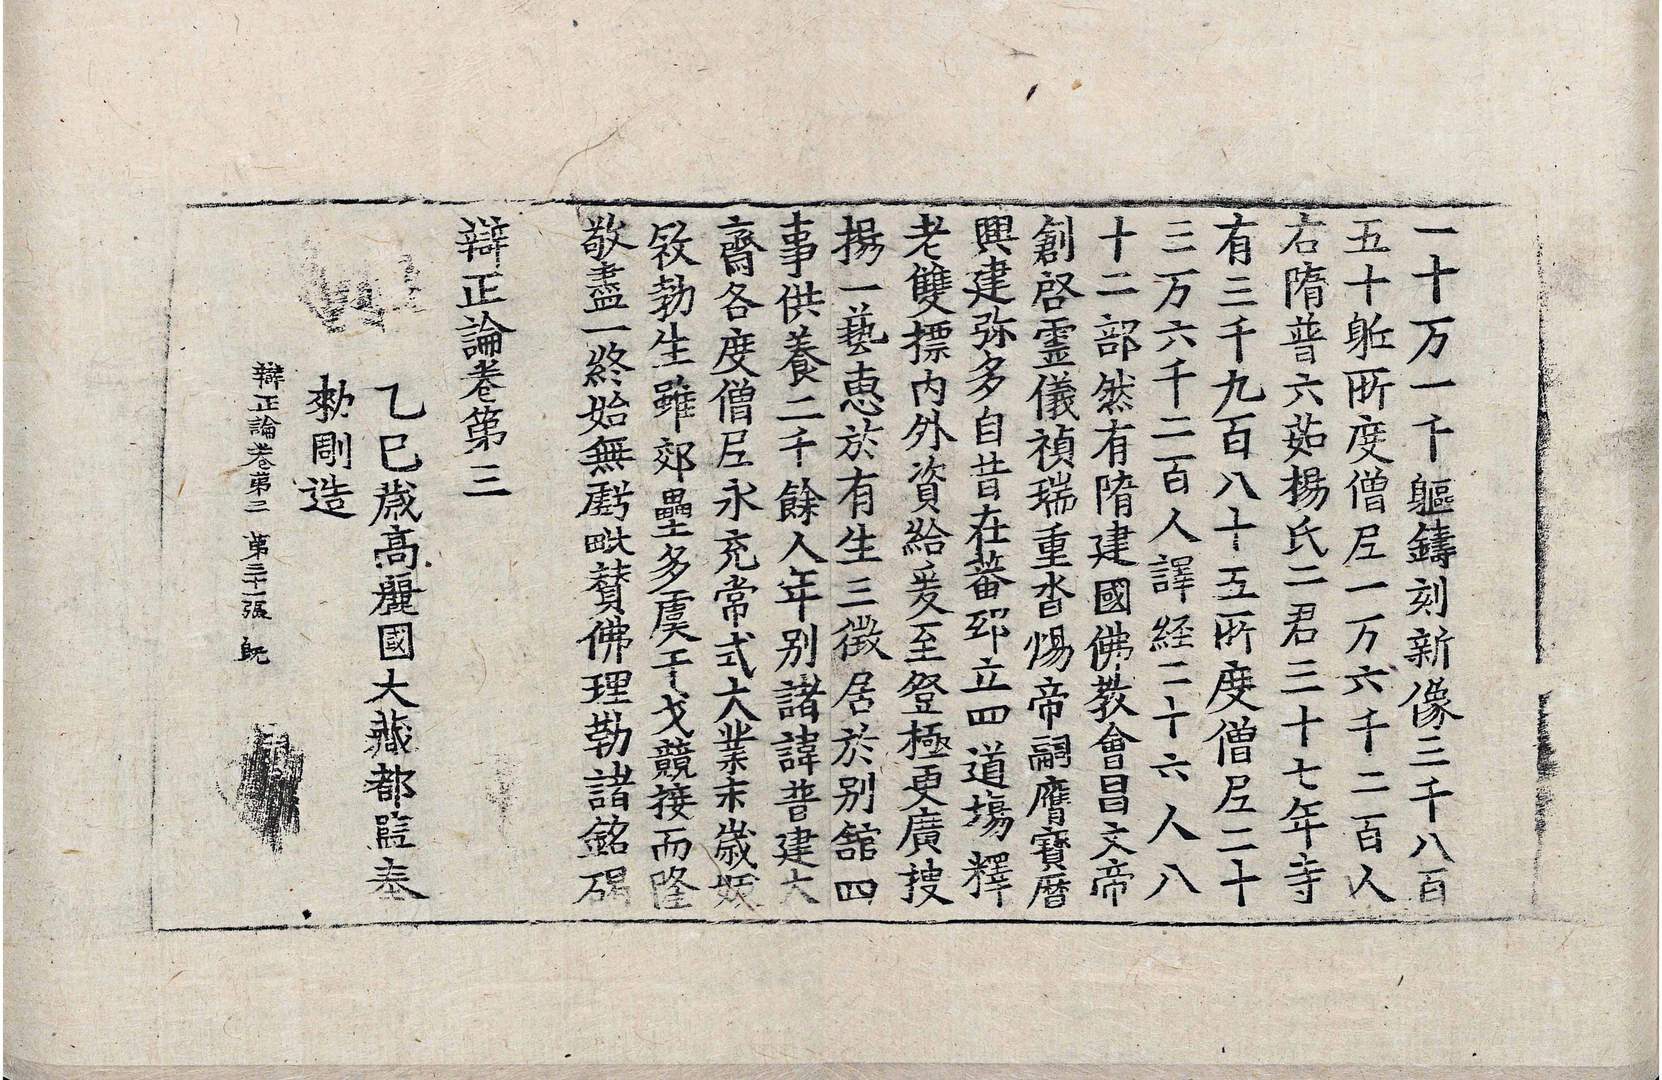 一十万一千軀鑄刻新像三千八百
五十軀所度僧尼一万六千二百人
右隋普六茹楊氏二君三十七年寺
有三千九百八十五所度僧尼二十
三万六千二百人譯経二十六人八
十二部然有隋建國佛教會昌文帝
創啓靈儀禎瑞重沓煬帝嗣膺寶曆
興建弥多自昔在蕃邸立四道場釋
老雙摽内外資給爰至登極更廣捜
揚一藝惠於有生三徵居於别舘四
事供養二千餘人年别諸諱普建大
齋各度僧尼永充常式大業末歳妖
勃生雖郊壘多虞干戈競接而隆
敬盡一終始無虧毗賛佛理勒諸銘碣
辯正論卷第三
乙巳歳高麗國大藏都監奉
勑彫造
辯正論卷第三 第三十一張 既